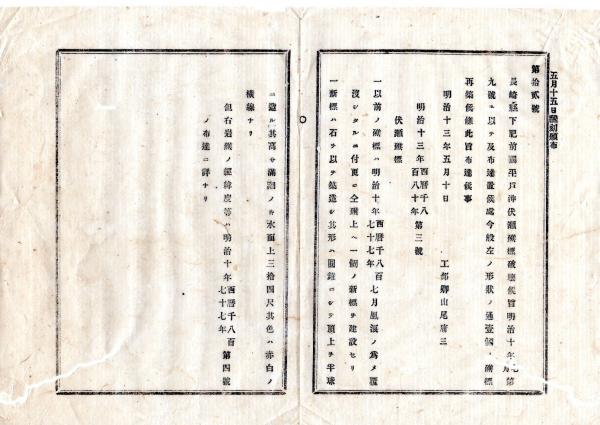 五月十五日翻刻頒布
第拾貳號
長崎縣下肥前國平戸沖伏瀬礁標破壞候旨明治十年七月第
九號ヲ以テ及布達置候處今般左ノ形狀ノ通壹個ノ礁標
再築候條此旨布達候事
明治十三年五月十日
工部卿山尾庸三
明治十三年西曆千八百八十年第三號
伏瀬礁標
一以前ノ礁標ハ明治十年西曆千八百七十七年七月風浪ノ爲メ覆
沒シタルニ付更ニ仝礁上ヘ一個ノ新標ヲ建設セリ
一新標ハ石ヲ以テ築造シ其形ハ圓錐ニシテ頂上ヲ半球
ニ造ル其高サ滿潮ノ時水面上三拾四尺其色ハ赤白ノ
橫線ナリ
但右岩礁ノ經緯度等ハ明治十年西曆千八百七十七年第四號
ノ布達ニ詳ナリ